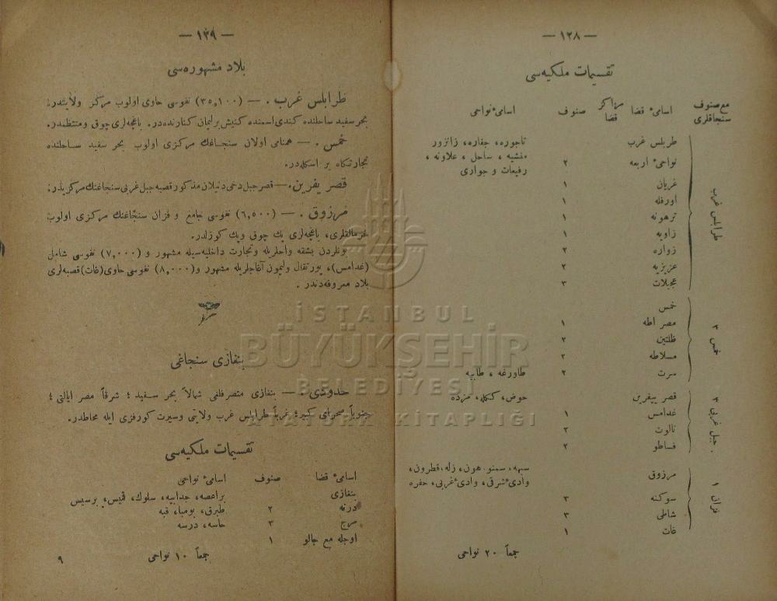 — ١٢٨ —
تقسیمات ملکیه‌سی
مع صنوف سنجاقلری
اسامیٔ قضا
مراکز قضا
صنوف
اسامیٔ نواحی
طرابلس غرب
طربلس غرب
تاجوره، جفاره، زانزور
نواحیٔ اربعه ٢ منشیه، ساحل، علاونه،
رقیعات و جواری
غریان ١
اورفله ١
ترهونه ١
زاویه ١
زواره ٢
عزیزیه ٢
عجیلات ٣
خمس ٣
خمس
مصراطه ١
ظلتین ٢
مسلاطه ٢
سرت ٢ طاورغه، طابیه
جبل غربی ٣
قصر یفرین حوض، ککله، مزده
غدامس ١
نالوت ٢
فساطو ٢
فزان ١
مرزوق سبهه، سمنو، هون، زله، قطرون،
وادیٔ شرقی، وادیٔ غربی، حفره
سوکنه ٣
شاطی ٣
غات ١
جمعاً ٢٠ نواحی
— ١٢٩ —
بلاد مشهوره‌سی
طرابلس غرب . — (٣٥,١٠٠) نفوسی حاوی اولوب مرکز ولایتدر.
بحر سفید ساحلنده کندی اسمنده کنیش بر لیمان کنارنده‌در. باغچه‌لری چوق و منتظمدر.
خمس . — همنامی اولان سنجاغك مرکزی اولوب بحر سفید ساحلنده
تجارتکاه بر اسکله‌در.
قصر یفرین. — قصر جبل دخی دنیلان مذکور قصبه جبل غربی سنجاغنك مرکزیدر.
مرزوق . — (٦,٥٠٠) نفوسی جامع و فزان سنجاغنك مرکزی اولوب
خرمالقلری، باغچه‌لری پك چوق و پك کوزلدر.
بونلردن بشقه واحه‌لریله و تجارت داخلیه‌سیله مشهور و (٧,٠٠٠) نفوسی شامل
(غدامس)، پورتقال و لیمون آغاجلریله مشهور و (٨,٠٠٠) نفوسی حاوی (غات) قصبه‌لری
بلاد معروفه‌دندر.
بنغازی سنجاغی
حدودی . — بنغازی متصرفلغی شمالاً بحر سفید؛ شرقاً مصر ایالتی؛
جنوباً صحرای کبیر؛ غرباً طرابلس غرب ولایتی و سیرت کورفزی ایله محاطدر.
تقسیمات ملکیه‌سی
اسامیٔ قضا صنوف اسامیٔ نواحی
بنغازی براعصه، جدابیه، سلوك، قمیس، برسیس
درنه ٢ طبرق، بومبا، قبه
مرج ٣ حاسه، درسه
اوجله مع جالو ١
جمعاً ١٠ نواحی
٩
İSTANBUL
BÜYÜKŞEHİR
BELEDİYESİ
ATATÜRK KİTAPLIĞI